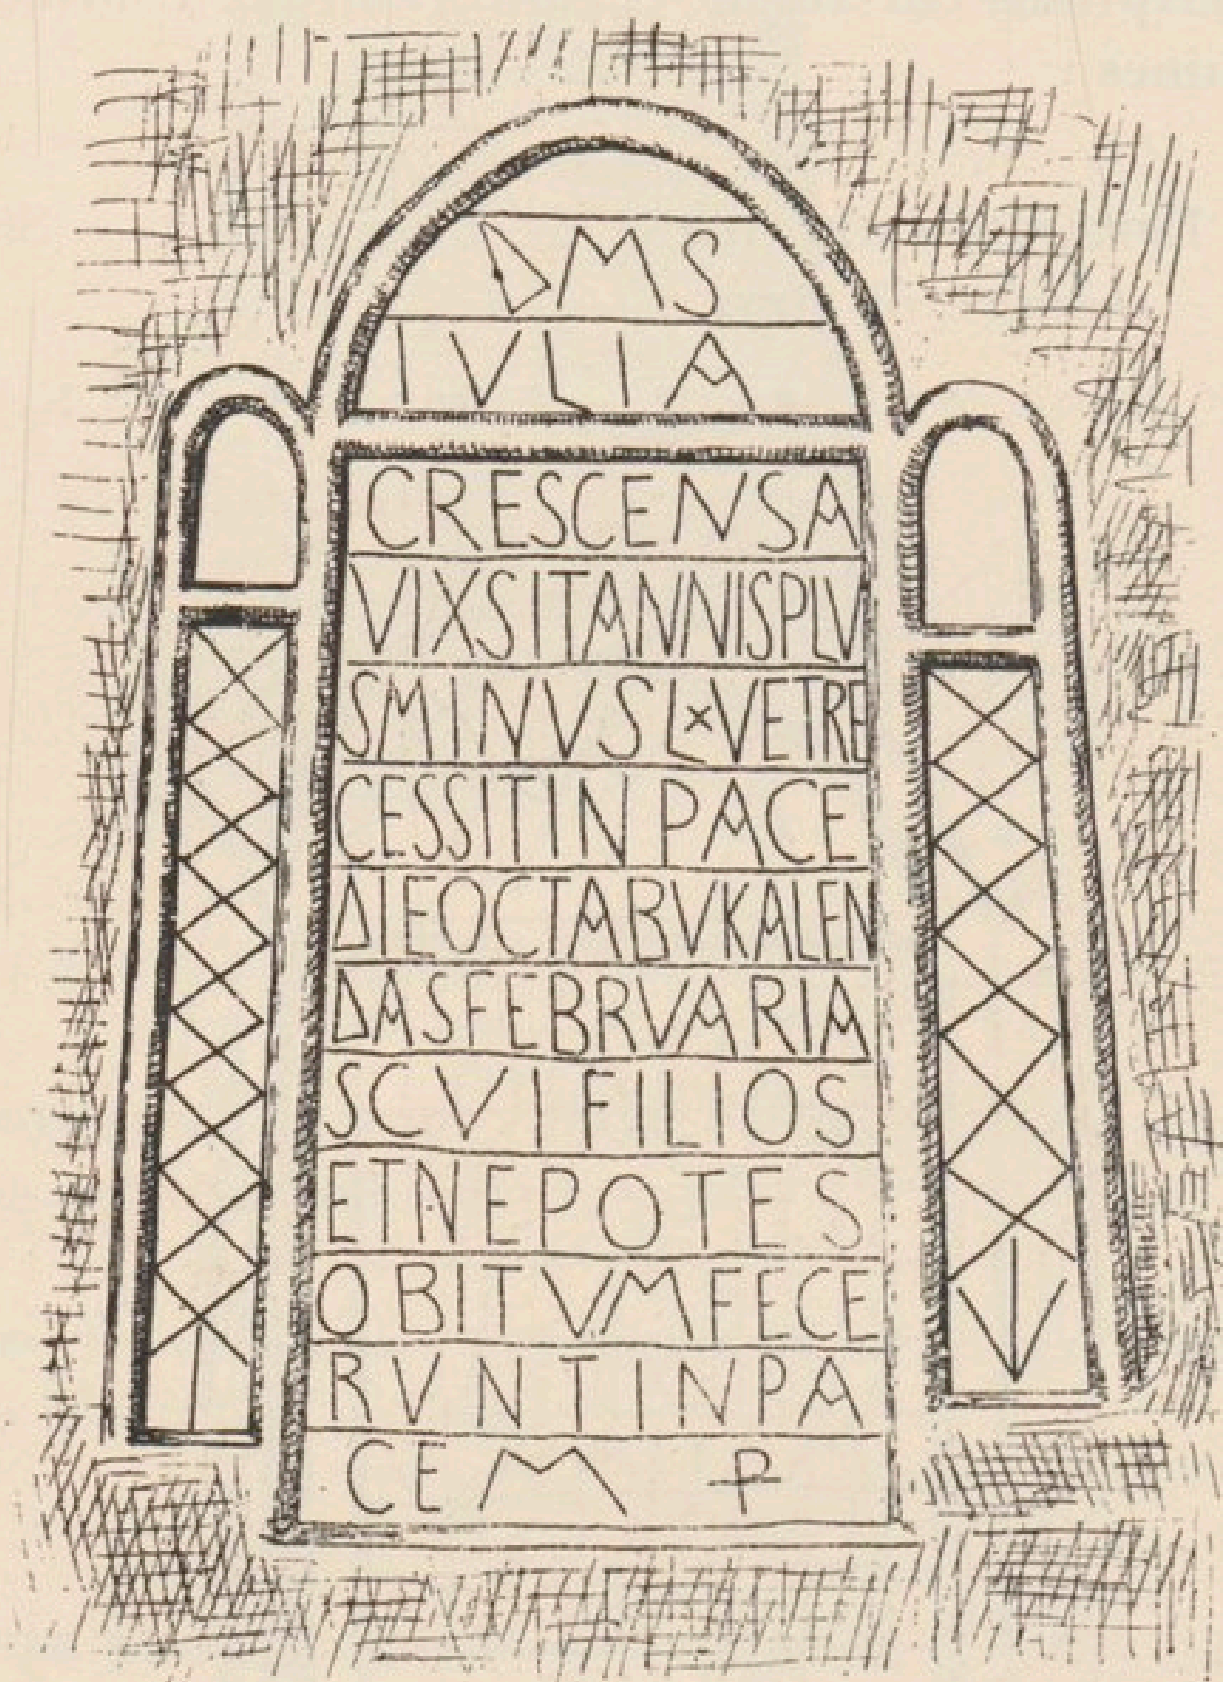 DMS
IVLIA
CRESCENSA
VIXSITANNISPLV
SMINVSLXVETRE
CESSITIN PACE
DIEOCTABVKALEN
DASFEBRVARIA
SCVIFILIOS
ETNEPOTES
OBITVMFECE
RVNTINPA
CEM ⳨